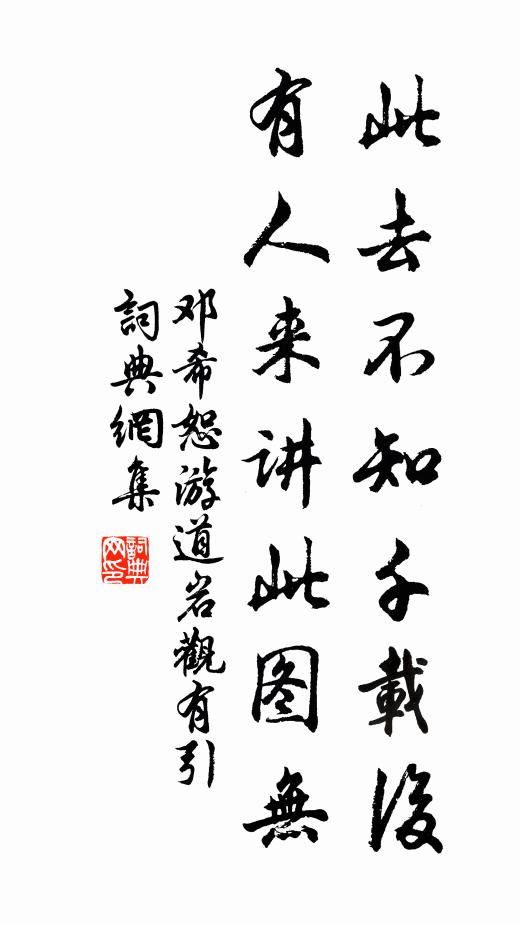 此去不知千載後
有人来讲此图無
邓希恕游道岩觀有引
詞典網集
詞典网印